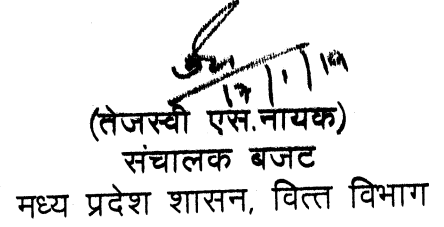 (तेजस्वी एस.नायक)
संचालक बजट
मध्य प्रदेश शासन, वित्त विभाग